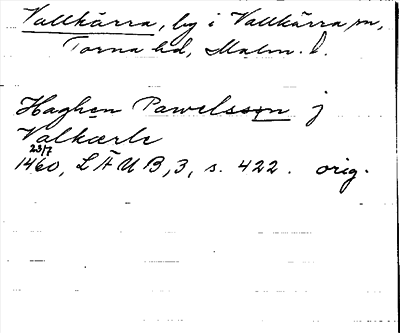 Vallkärra, by i Vallkärra sn,
Torna hd, Malm. l.
Haghen Pawelsson j
Valkærle
23/7
1460, LÄUB, 3, s. 422. orig.